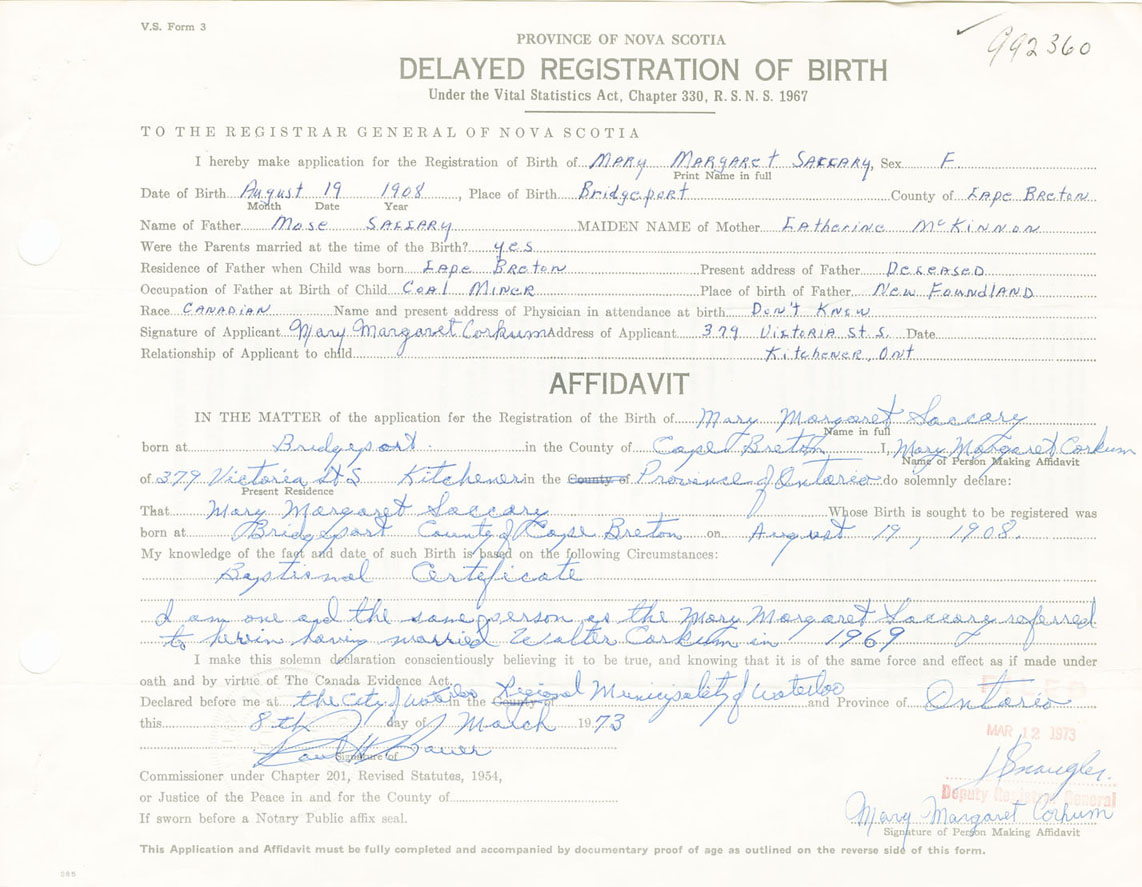 V.S. Form 3
992360
PROVINCE OF NOVA SCOTIA
DELAYED REGISTRATION OF BIRTH
Under the Vital Statistics Act, Chapter 330, R. S. N. S. 1967
TO THE REGISTRAR GENERAL OF NOVA SCOTIA
I hereby make application for the Registration of Birth of MARY MARGARET SACCARY, Sex F
Print Name in full
Date of Birth August 19 1908, Place of Birth Bridgeport County of Cape Breton
Month Date Year
Name of Father Mose SACCARY MAIDEN NAME of Mother Catherine McKinnon
Were the Parents married at the time of the Birth? yes
Residence of Father when Child was born Cape Breton Present address of Father Deceased
Occupation of Father at Birth of Child Coal Miner Place of birth of Father New Foundland
Race Canadian Name and present address of Physician in attendance at birth Don't Know
Signature of Applicant Mary Margaret Corkum Address of Applicant 379 Victoria St S. Date
Relationship of Applicant to child Kitchener, Ont
AFFIDAVIT
IN THE MATTER of the application for the Registration of the Birth of Mary Margaret Saccary
Name in full
born at Bridgeport in the County of Cape Breton I, Mary Margaret Corkum
Name of Person Making Affidavit
of 379 Victoria St S Kitchener in the County of Province of Ontario do solemnly declare:
Present Residence
That Mary Margaret Saccary Whose Birth is sought to be registered was
born at Bridgeport County of Cape Breton on August 19, 1908.
My knowledge of the fact and date of such Birth is based on the following Circumstances:
Baptismal Certificate
I am one and the same person as the Mary Margaret Saccary referred
to herin having married Walter Corkum in 1969
I make this solemn declaration conscientiously believing it to be true, and knowing that it is of the same force and effect as if made under
oath and by virtue of The Canada Evidence Act.
FILED
Declared before me at the City of Waterloo in the County of Regional Municipality of Waterloo and Province of Ontario
this 8th day of March 1973
MAR 12 1973
Signature of
Commissioner under Chapter 201, Revised Statutes, 1954,
Deputy Registrar General
or Justice of the Peace in and for the County of
Mary Margaret Corkum
If sworn before a Notary Public affix seal.
Signature of Person Making Affidavit
This Application and Affidavit must be fully completed and accompanied by documentary proof of age as outlined on the reverse side of this form.